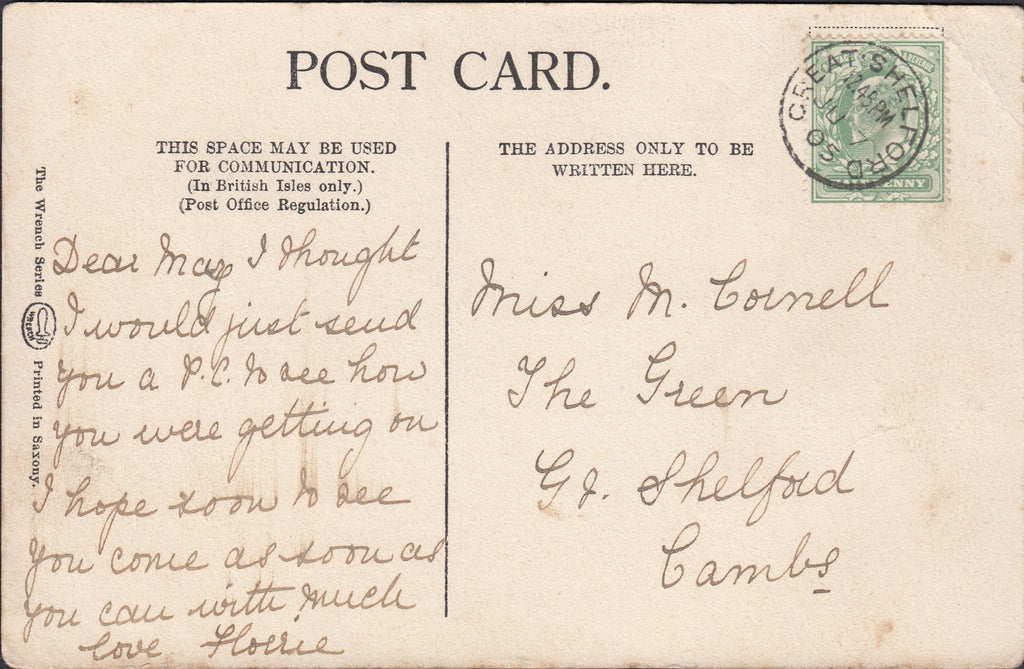 POST CARD.
THIS SPACE MAY BE USED
FOR COMMUNICATION.
(In British Isles only.)
(Post Office Regulation.)
THE ADDRESS ONLY TO BE
WRITTEN HERE.
GREAT SHELFORD
12.45PM
JU
30
PENNY
The Wrench Series
WRENCH
Printed in Saxony.
Dear May I thought
I would just send
you a P.C. to see how
you were getting on
I hope soon to see
you come as soon as
you can with much
love
Miss M. Cornell
The Green
Gt. Shelford
Cambs